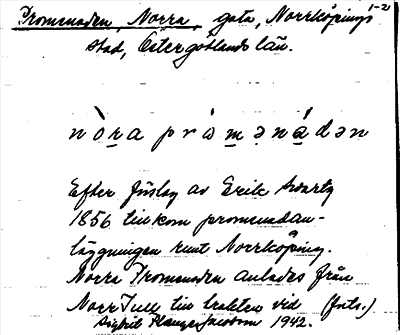 1-2
Promenaden, Norra, gata, Norrköpings
stad, Östergötlands län.
nòra pròmenádən
Efter förslag av Erik Swartz
1856 tillkom promenadan-
läggningen runt Norrköping.
Norra Promenaden anlades från
Norr Tull till trakten vid (forts.)
Sigrid 1942.